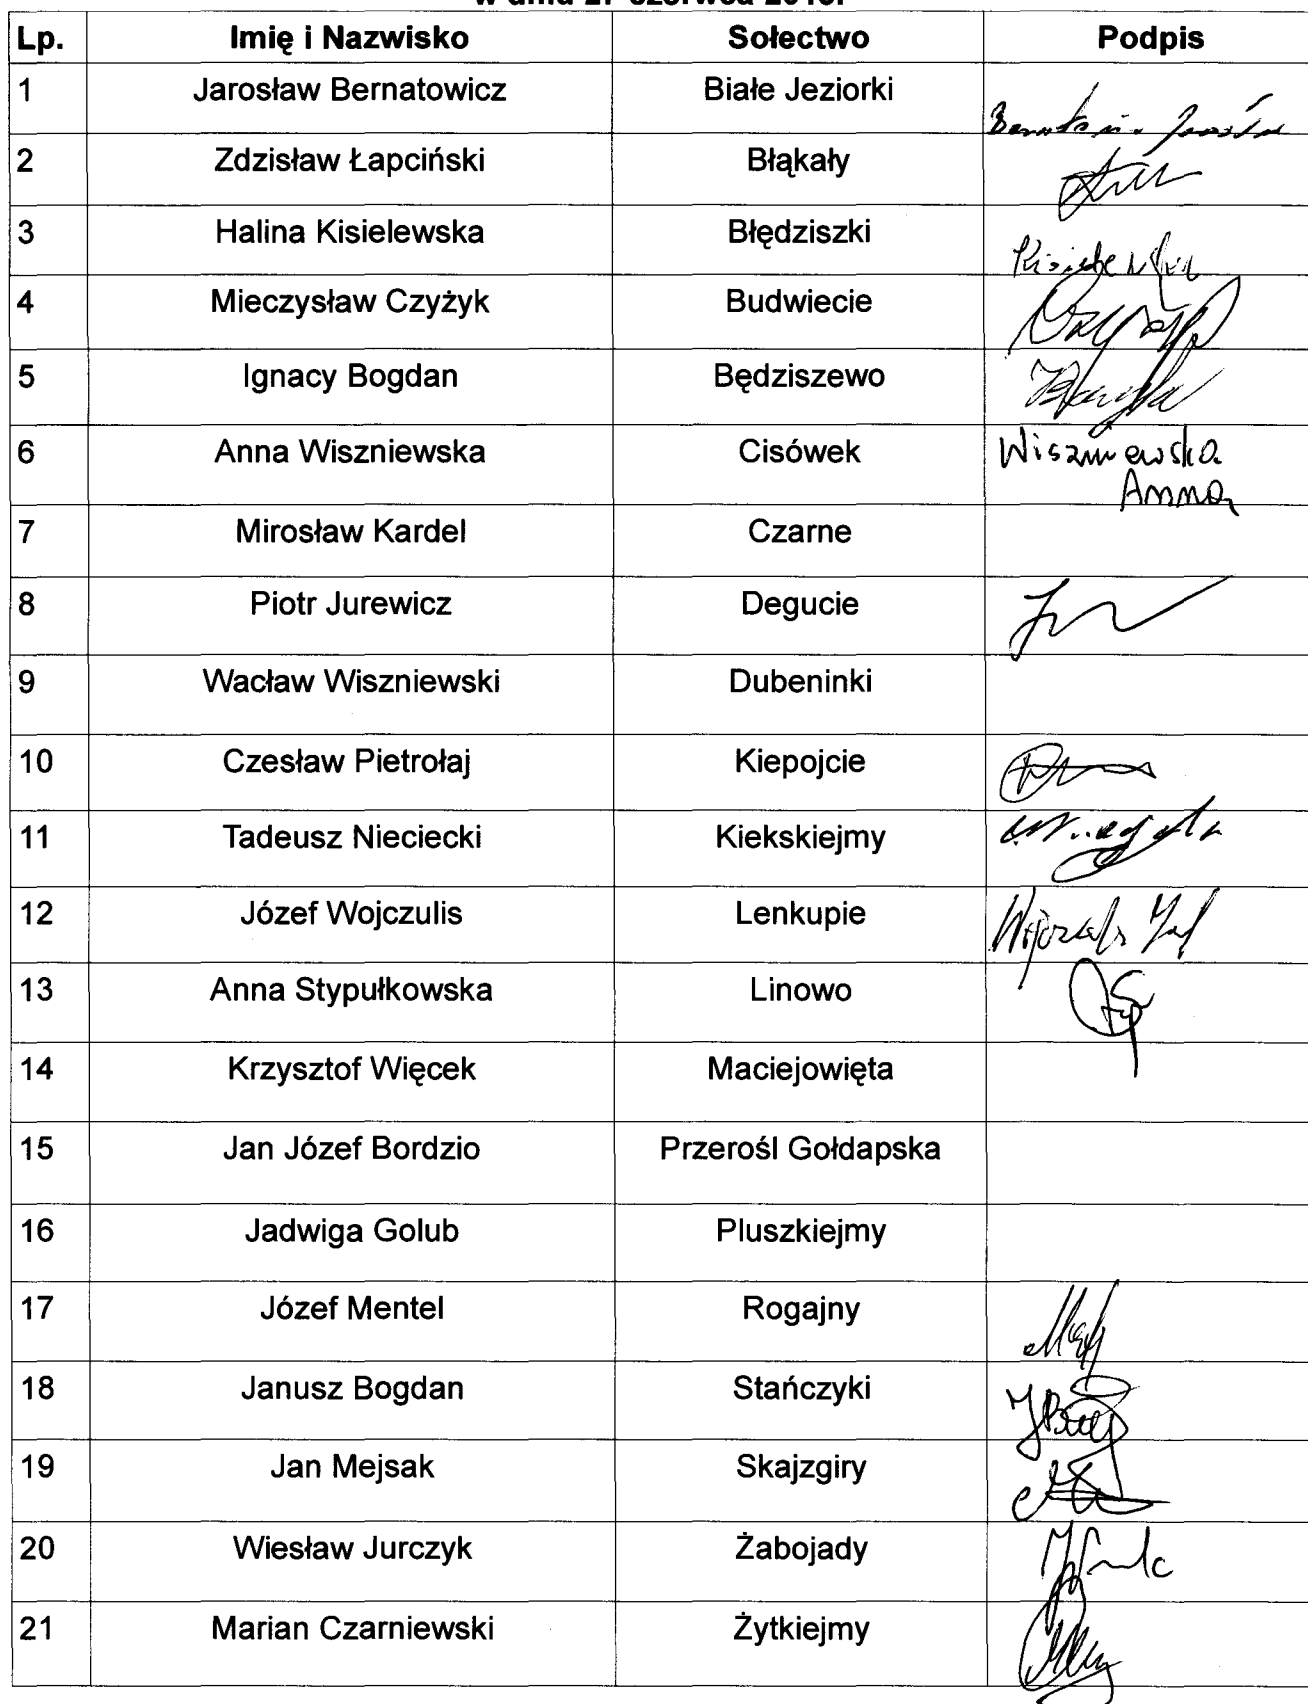 Lp. Imię i Nazwisko Sołectwo Podpis
1 Jarosław Bernatowicz Białe Jeziorki
2 Zdzisław Łapciński Błąkały
3 Halina Kisielewska Błędziszki
4 Mieczysław Czyżyk Budwiecie
5 Ignacy Bogdan Będziszewo
6 Anna Wiszniewska Cisówek Wiszniewska
Anna
7 Mirosław Kardel Czarne
8 Piotr Jurewicz Degucie
9 Wacław Wiszniewski Dubeninki
10 Czesław Pietrołaj Kiepojcie
11 Tadeusz Nieciecki Kiekskiejmy
12 Józef Wojczulis Lenkupie
13 Anna Stypułkowska Linowo
14 Krzysztof Więcek Maciejowięta
15 Jan Józef Bordzio Przerośl Gołdapska
16 Jadwiga Golub Pluszkiejmy
17 Józef Mentel Rogajny
18 Janusz Bogdan Stańczyki
19 Jan Mejsak Skajzgiry
20 Wiesław Jurczyk Żabojady
21 Marian Czarniewski Żytkiejmy